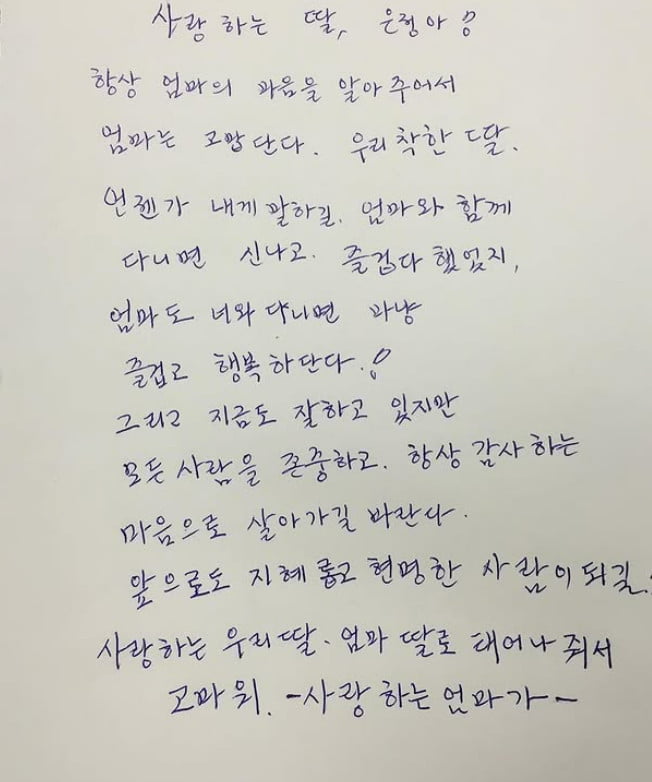 사랑하는 딸, 은정아!
항상 엄마의 마음을 알아주어서
엄마는 고맙단다. 우리 착한 딸.
언젠가 내게 말하길. 엄마와 함께
다니면 신나고. 즐겁다 했었지,
엄마도 너와 다니면 마냥
즐겁고 행복하단다.!
그리고 지금도 잘하고 있지만
모든 사람을 존중하고. 항상 감사하는
마음으로 살아가길 바란다.
앞으로도 지혜롭고 현명한 사람이 되길.
사랑하는 우리딸. 엄마 딸로 태어나 줘서
고마워. -사랑하는 엄마가-